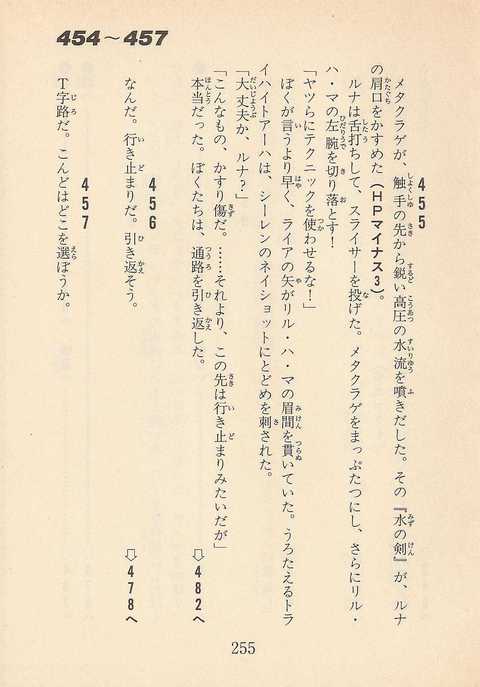 454～457
455
メタクラゲが、触手の先から鋭い高圧の水流を噴きだした。その『水の剣』が、ルナ
の肩口をかすめた（HPマイナス3）。
ルナは舌打ちして、スライサーを投げた。メタクラゲをまっぷたつにし、さらにリル・
ハ・マの左腕を切り落とす！
「ヤツらにテクニックを使わせるな！」
ぼくが言うより早く、ライアの矢がリル・ハ・マの眉間を貫いていた。うろたえるトラ
イハイトアーハは、シーレンのネイショットにとどめを刺された。
「大丈夫か、ルナ？」
「こんなもの、かすり傷だ。……それより、この先は行き止まりみたいだが」
本当だった。ぼくたちは、通路を引き返した。
⇨482へ
456
なんだ。行き止まりだ。引き返そう。
⇨478へ
457
T字路だ。こんどはどこを選ぼうか。
255